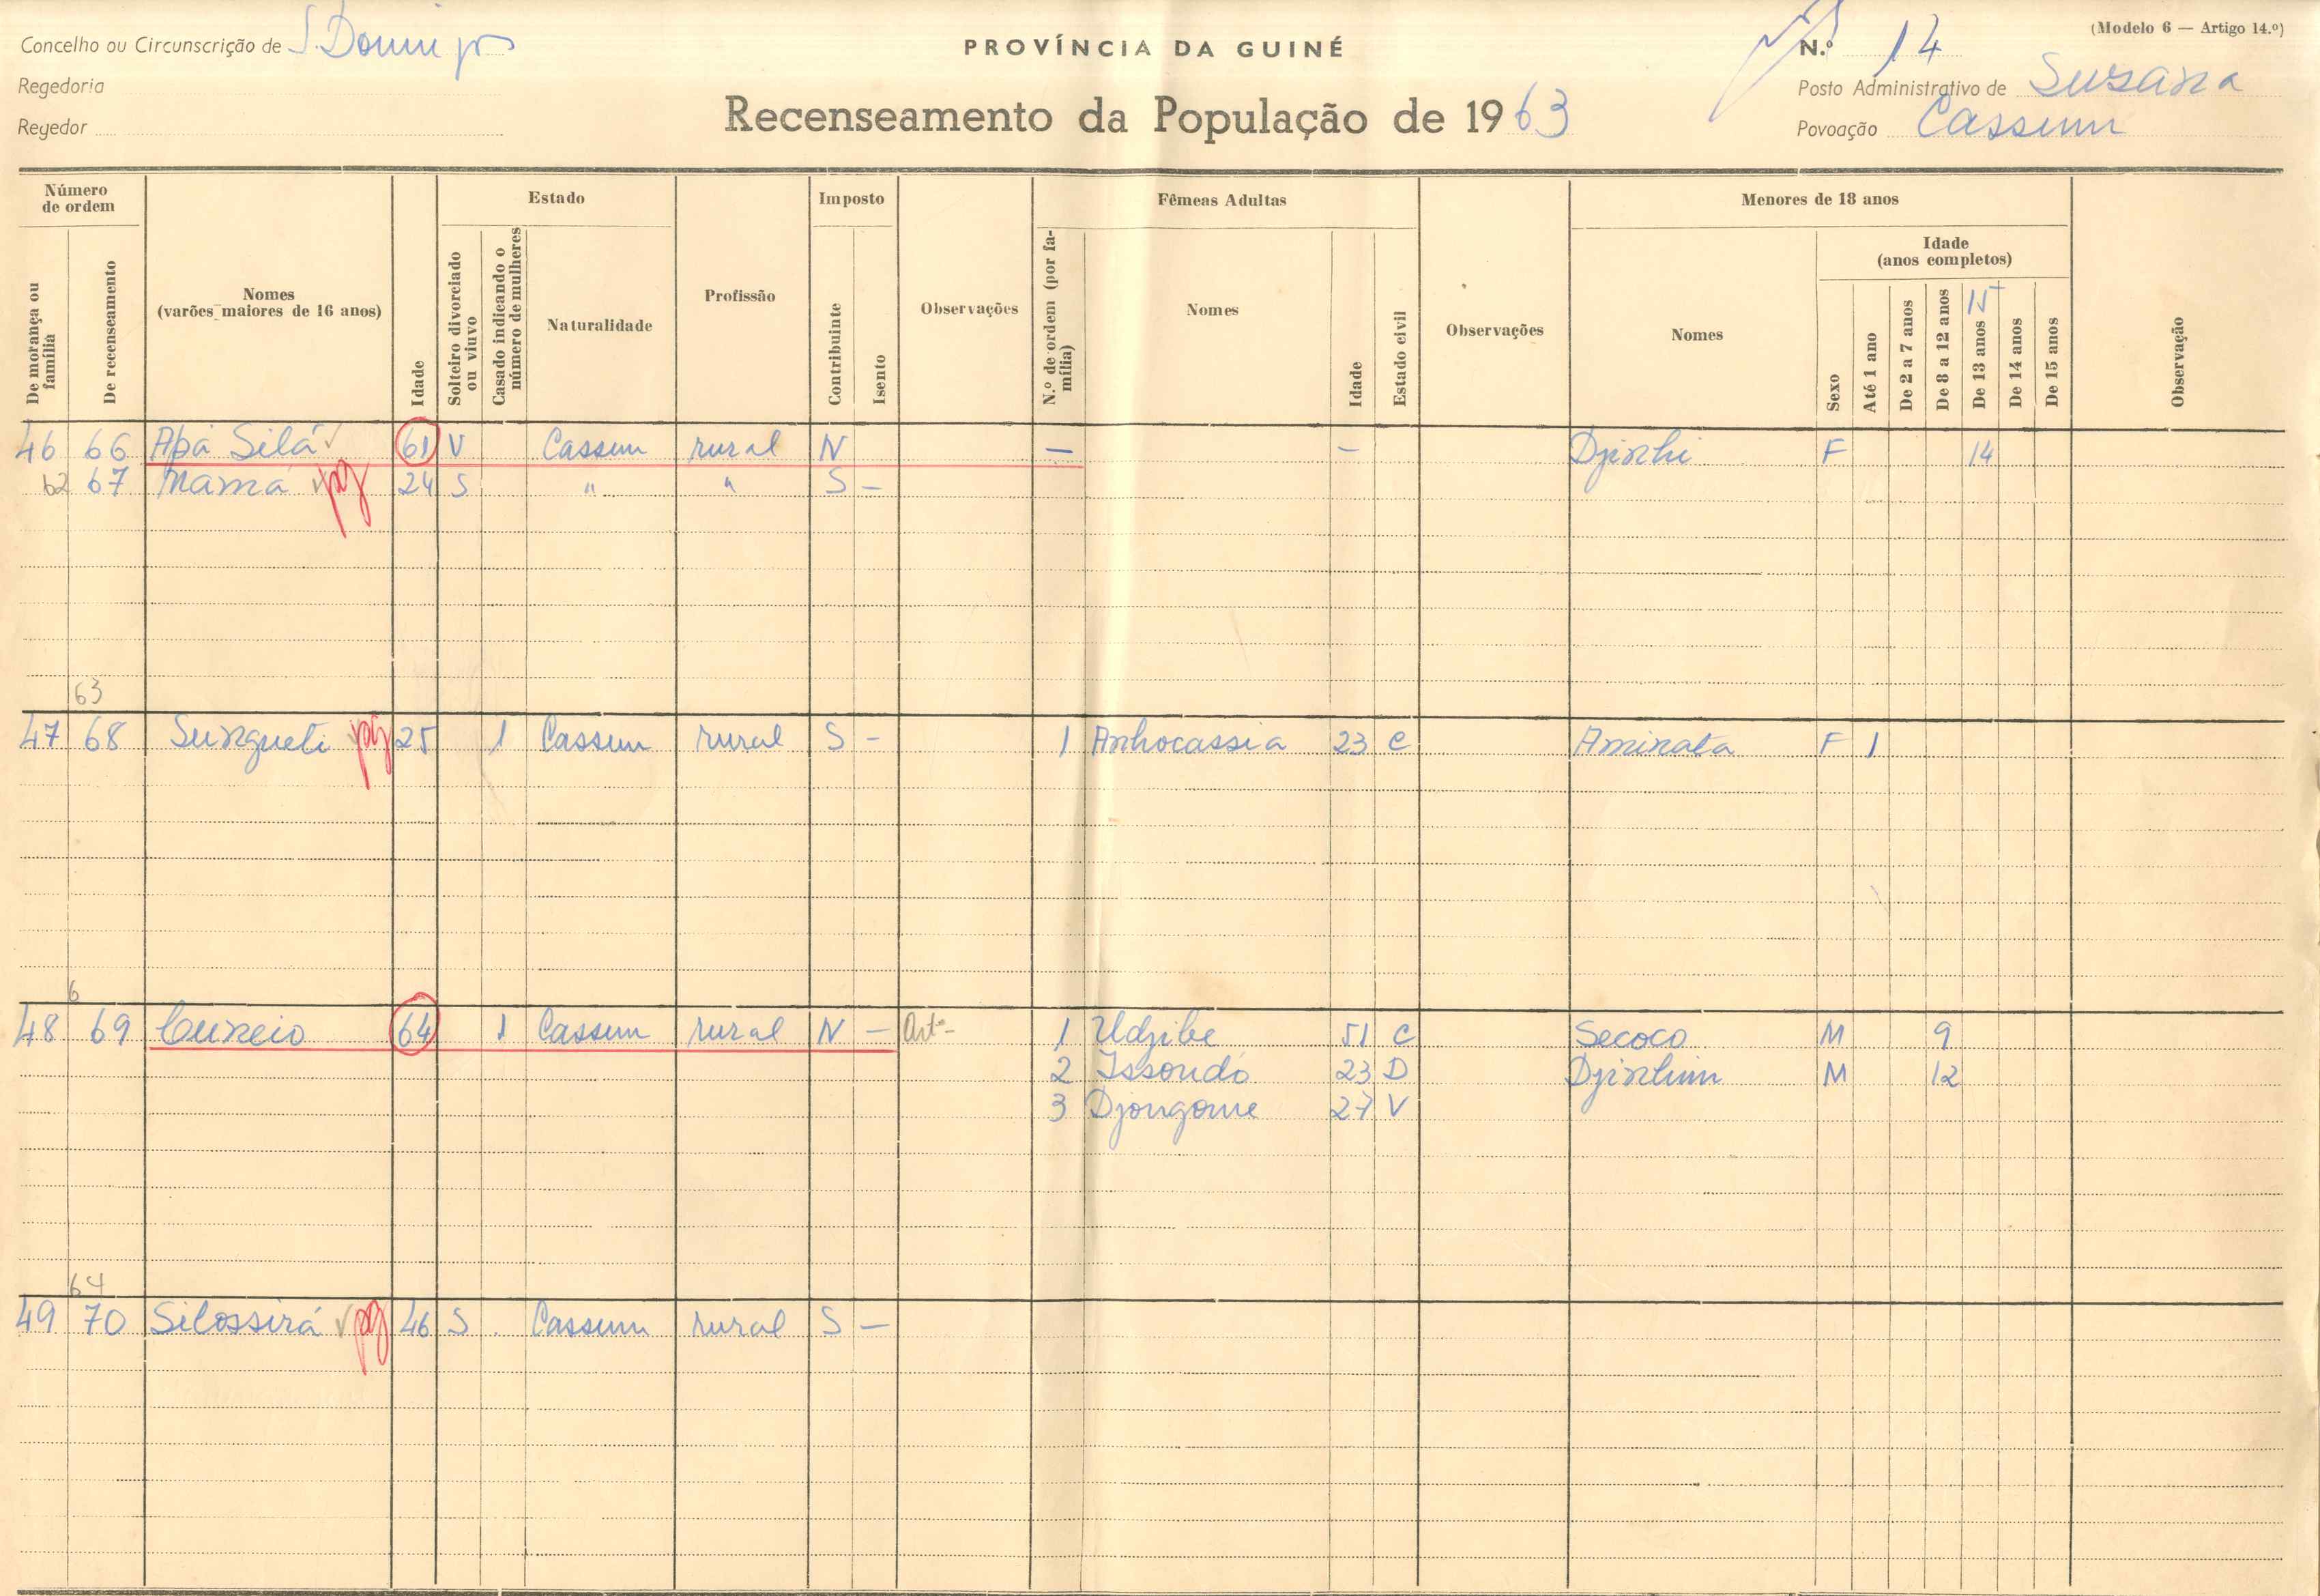 (Modelo 6 — Artigo 14.º)
Concelho ou Circunscrição de S. Domingos
PROVÍNCIA DA GUINÉ
N.º 14
Regedoria
Posto Administrativo de Susana
Regedor
Recenseamento da População de 1963
Povoação Cassum
Número de ordem
Estado
Imposto
Fêmeas Adultas
Menores de 18 anos
De morança ou família
De recenseamento
Nomes
(varões maiores de 16 anos)
Idade
Solteiro divorciado ou viuvo
Casado indicando o número de mulheres
Naturalidade
Profissão
Contribuinte
Isento
Observações
N.º de ordem (por família)
Nomes
Idade
Estado civil
Observações
Nomes
Sexo
Idade
(anos completos)
Até 1 ano
De 2 a 7 anos
De 8 a 12 anos
15
De 13 anos
De 14 anos
De 15 anos
Observação
46 66 Apá Silá 61 V Cassum rural N — — Djinhi F 14
62 67 Mamá pg 24 S " " S —
63
47 68 Sungueti pg 25 1 Cassum rural S — 1 Anhocassia 23 C Aminata F 1
6
48 69 Cuneio 64 1 Cassum rural N — Artº 1 Udjibe 51 C Secoco M 9
2 Issondó 23 D Djinhim M 12
3 Djongome 27 V
64
49 70 Silossirá pg 46 S Cassum rural S —